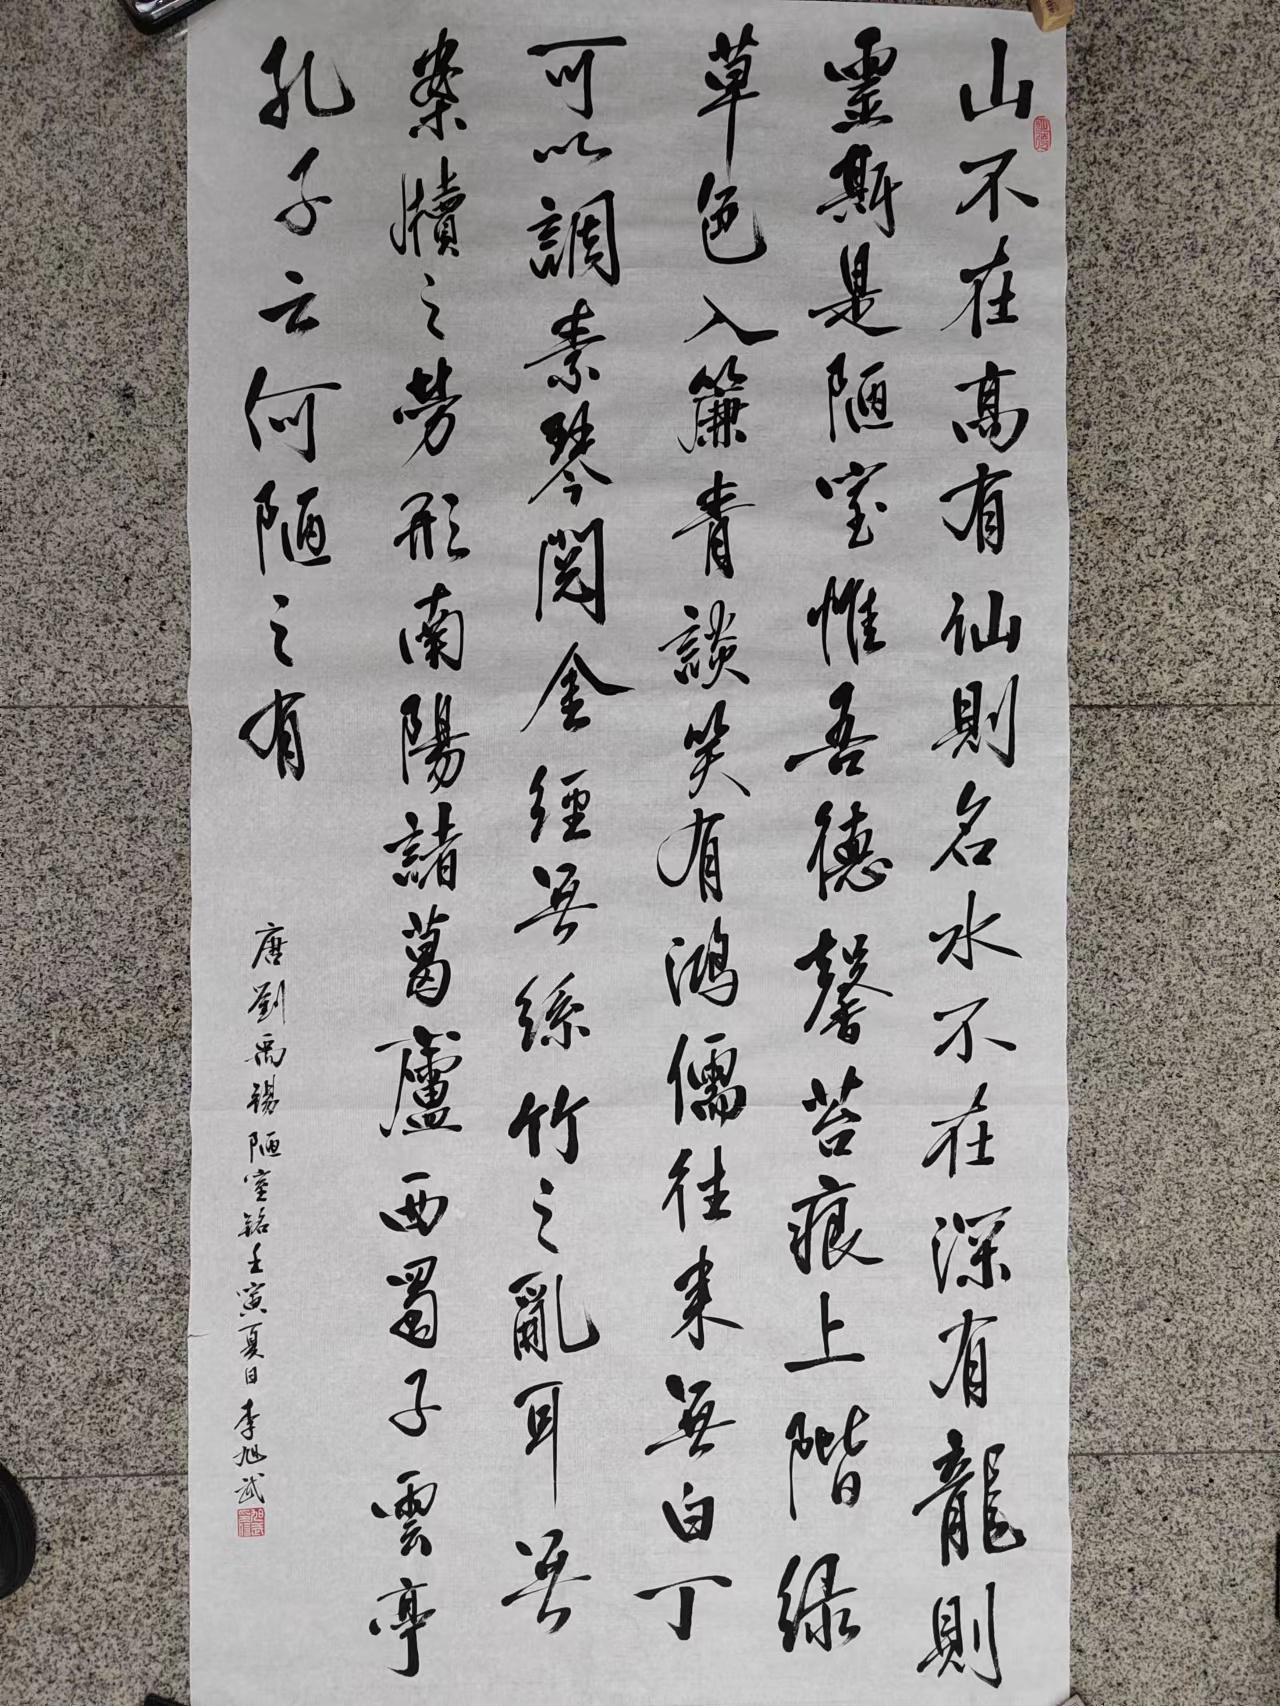 山不在高有仙則名水不在深有龍則
靈斯是陋室惟吾德馨苔痕上階緑
草色入簾青談笑有鴻儒往来無白丁
可以調素琴閲金經无絲竹之亂耳无
案牘之勞形南陽諸葛廬西蜀子雲亭
孔子云何陋之有
唐劉禹錫陋室銘壬寅夏日李旭武